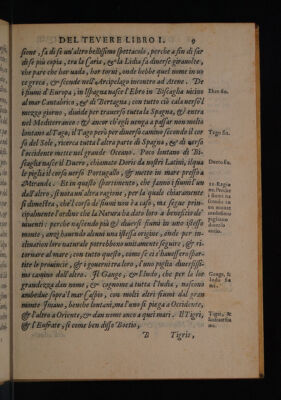 DEL TEVERE LIBRO I. 9
sione, fa di se un'altro bellissimo spettacolo, perche a fin di far
di se più copia, tra la Caria, & la Lidia fa diverse giravolte,
che pare che hor vada, hor torni, onde hebbe quel nome in vo
ce greca, & scende nell'Arcipelago incontro ad Atene. De
i fiumi d'Europa, in Ispagna nasce l'Ebro in Biscaglia vicino
al mar Cantabrico, & di Bertagna; con tutto ciò cala verso'l
mezzo giorno, divide per traverso tutta la Spagna, & entra
nel Mediterraneo: & ancor ch'egli venga a passar non molto
lontano al Tago, il Tago però per diverso camino secondo il cor
so del Sole, ricerca tutta l'altra parte di Spagna, & di verso
l'occidente mette nel grande Oceano. Poco lontano di Bi-
scaglia nasce il Duero, chiamato Doris da nostri Latini, il qua
le piglia il corso verso Portugallo, & entra in mare presso a
Mirande. Et in questo spartimento, che fanno i fiumi un
dall'altro, si nota un'altra ragione, per la quale chiaramente
si dimostra, che'l corso de fiumi non è a caso, ma segue prin-
cipalmente l'ordine che la Natura ha dato loro a beneficio de'
viventi: perche nascendo più & diversi fiumi in uno istesso
monte, anzi havendo alcuni una istessa origine, onde per in-
clination loro naturale potrebbono unitamente seguire, & ri-
tornare al mare, con tutto questo, come se fusse chi havessero
proprie le provincie, & i governi tra loro, l'uno piglia diversissi-
mo camino dall'altro. Il Gange, & l'Indo, che per la lor
grandezza dan nome, & cognome a tutta l'India, nascono
ambedue sopra'l mar Caspio, con molti altri fiumi dal gran
monte Imavo, benche lontani, ma l'uno si piega a Occidente,
& l'altro a Oriente, & dan nome anco a quei mari. Il Tigri,
& l'Eufrate, si come ben disse Boetio,
B Tigris,
Ebro fiu.
Tago fiu.
Duero fiu.
Gange, &
Indo fiu
mi.
Tigris, &